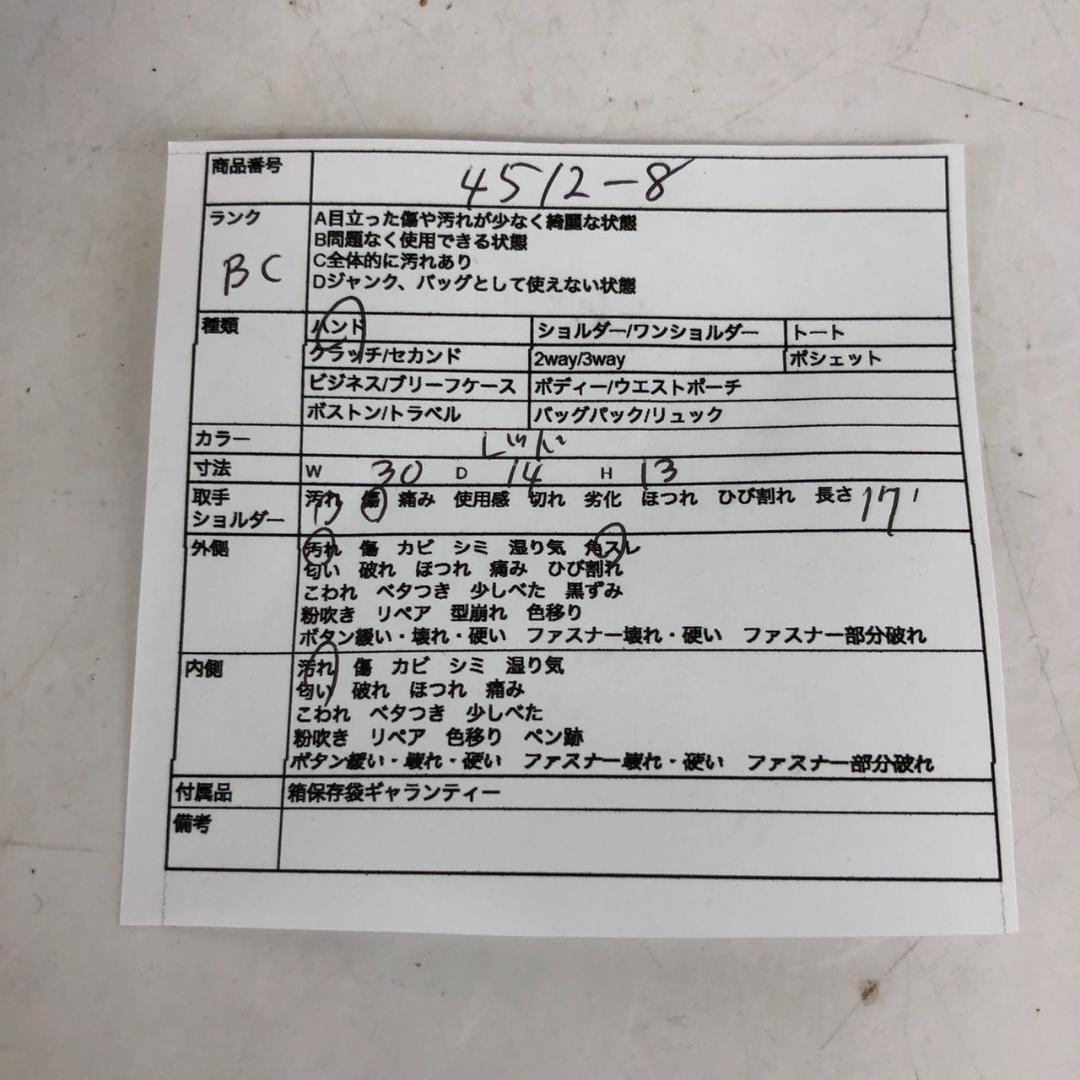 商品番号 4512-8
ランク BC
A目立った傷や汚れが少なく綺麗な状態
B問題なく使用できる状態
C全体的に汚れあり
Dジャンク、バッグとして使えない状態
種類 ハンド ショルダー/ワンショルダー トート
クラッチ/セカンド 2way/3way ポシェット
ビジネス/ブリーフケース ボディー/ウエストポーチ
ボストン/トラベル バッグパック/リュック
カラー レッド
寸法 W 30 D 14 H 13
取手 汚れ 傷 痛み 使用感 切れ 劣化 ほつれ ひび割れ 長さ 17
ショルダー
外側 汚れ 傷 カビ シミ 湿り気 角スレ
匂い 破れ ほつれ 痛み ひび割れ
こわれ ベタつき 少しべた 黒ずみ
粉吹き リペア 型崩れ 色移り
ボタン緩い・壊れ・硬い ファスナー壊れ・硬い ファスナー部分破れ
内側 汚れ 傷 カビ シミ 湿り気
匂い 破れ ほつれ 痛み
こわれ ベタつき 少しべた
粉吹き リペア 色移り ペン跡
ボタン緩い・壊れ・硬い ファスナー壊れ・硬い ファスナー部分破れ
付属品 箱保存袋ギャランティー
備考